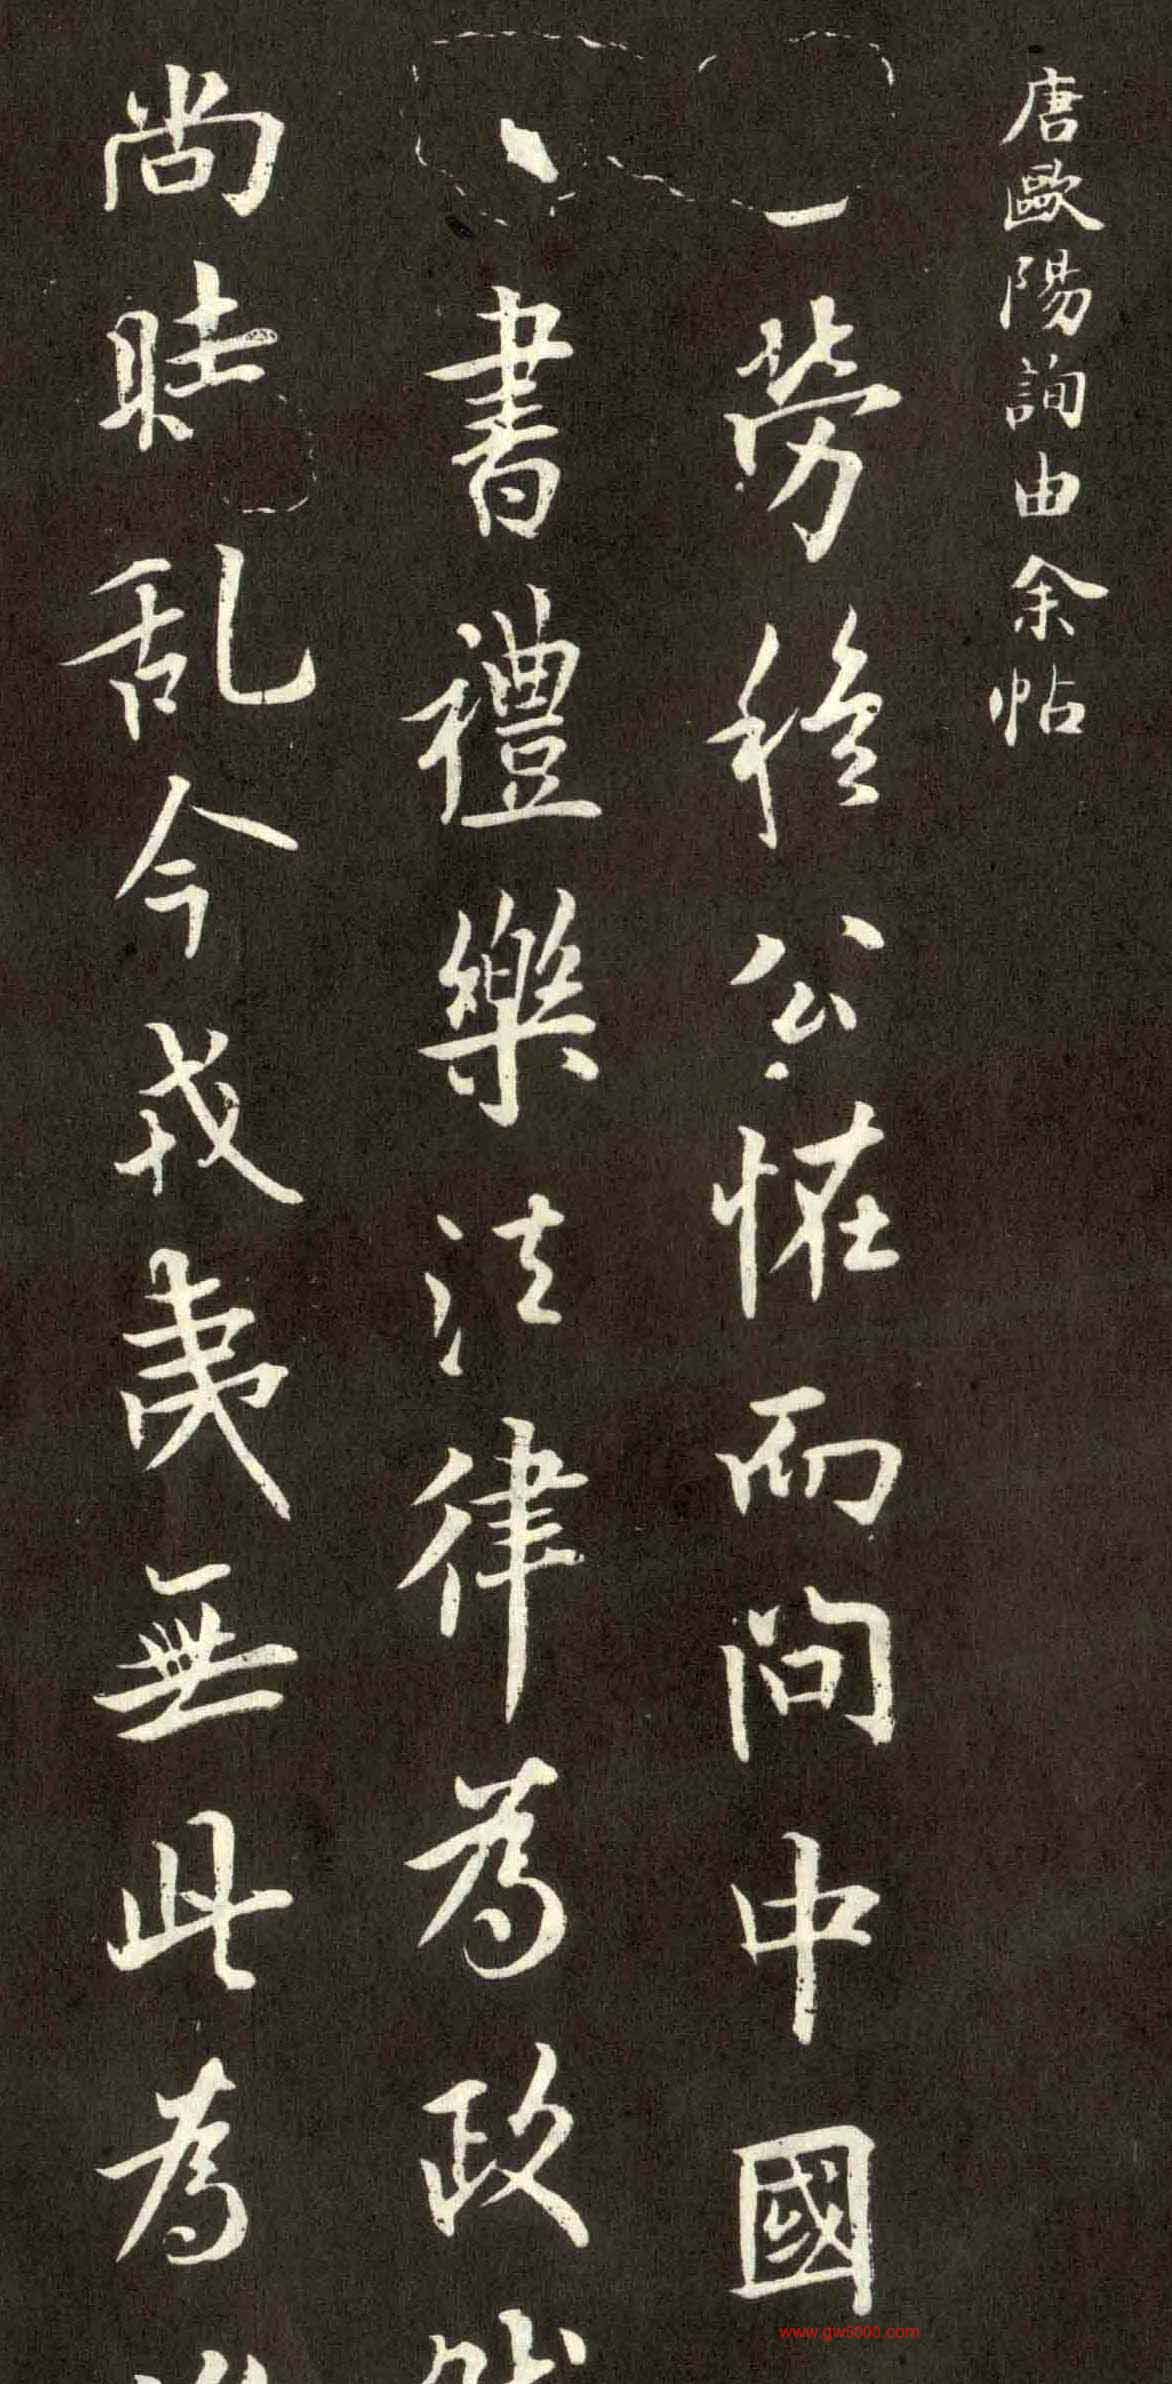 唐歐陽詢由余帖
一勞穆公怪而問中國
書禮樂法律為政
尚時乱今戎夷無此為
www.gw5000.com